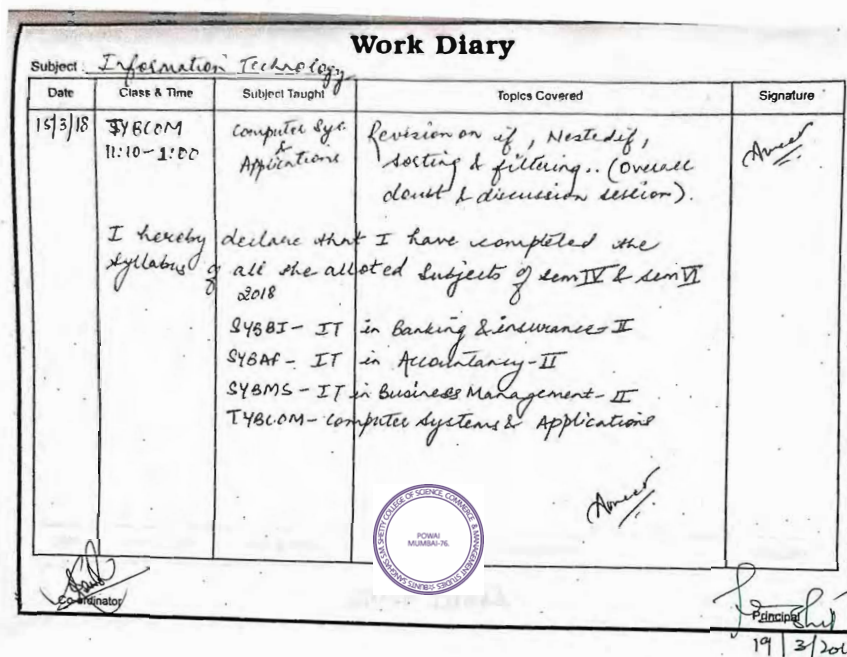 Work Diary
Subject: Information Technology
Date Class & Time Subject Taught Topics Covered Signature
15/3/18 TYBCOM Computer Sys. Revision on if, Nestedif,
11:10-1:00 & sorting & filtering.. (Overall
Applications doubt & discussion session).
I hereby declare that I have completed the
syllabus of all the alloted subjects of sem IV & sem VI
2018
SYBBI - IT in Banking & insurance - II
SYBAF - IT in Accountancy - II
SYBMS - IT in Business Management - II
TYBCOM - Computer Systems & Applications
BUNTS SANGHA'S S.M. SHETTY COLLEGE OF SCIENCE, COMMERCE & MANAGEMENT STUDIES
POWAI
MUMBAI-76.
Co-ordinator
Principal
19/3/201